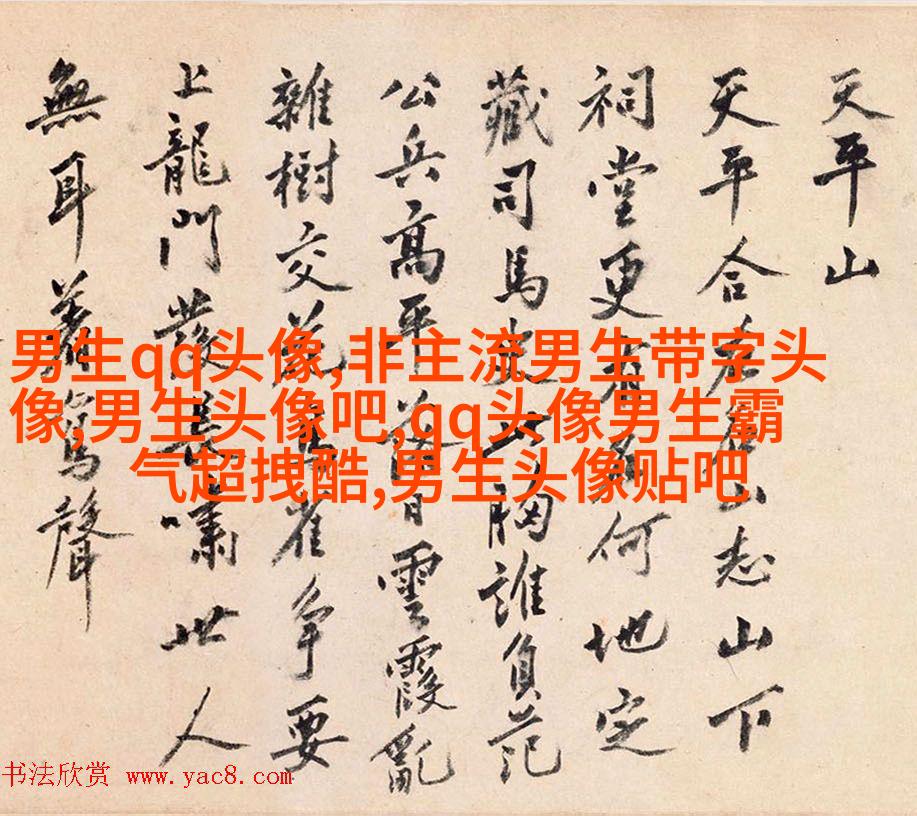 天平山
天平合山志山下
祠堂更何地定
藏司馬史胸誰負范
公兵高平落日雲霞亂
雜樹交花雀爭要
上龍門發長嘯世人
無耳著聲
男生qq头像,非主流男生带字头
像,男生头像吧,qq头像男生霸
气超拽酷,男生头像贴吧
书法欣赏 www.yac8.com